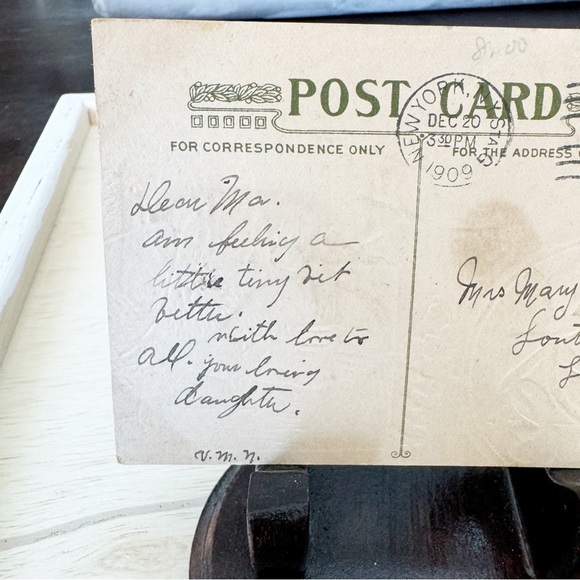 $1.00
POST CARD
NEW YORK, N.Y. STA. G
DEC 20
3 30 PM
1909
FOR CORRESPONDENCE ONLY
FOR THE ADDRESS O
Dear Ma.
am feeling a
little tiny bit
better.
with love to
all. your loving
daughter.
V. M. N.
Mrs Mary
Sout